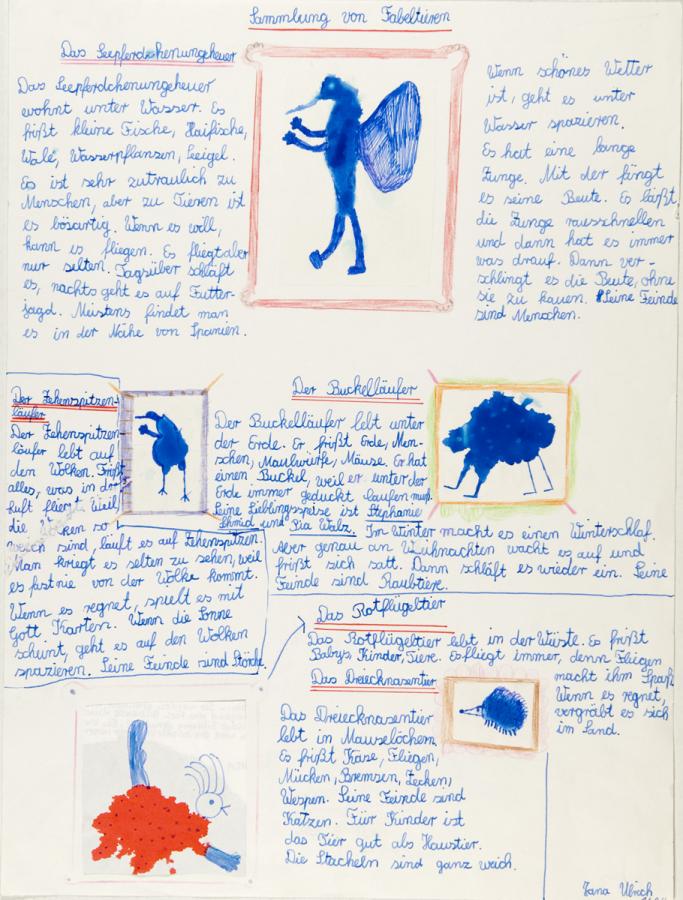 Sammlung von Fabeltieren
Das Seepferdchenungeheuer
Das Seepferdchenungeheuer
wohnt unter Wasser. Es
frißt kleine Fische, Haifische,
Wale, Wasserpflanzen, Seeigel.
Es ist sehr zutraulich zu
Menschen, aber zu Tieren ist
es bösartig. Wenn es will,
kann es fliegen. Es fliegt aber
nur selten. Tagsüber schläft
es, nachts geht es auf Futter-
jagd. Meistens findet man
es in der Nähe von Spanien.
Wenn schönes Wetter
ist, geht es unter
Wasser spazieren.
Es hat eine lange
Zunge. Mit der fängt
es seine Beute. Es läßt
die Zunge rausschnellen
und dann hat es immer
was drauf. Dann ver-
schlingt es die Beute, ohne
sie zu kauen. Seine Feinde
sind Menschen.
Der Zehenspitzen-
läufer
Der Zehenspitzen-
läufer lebt auf
den Wolken. Frißt
alles, was in der
Luft fliegt. Weil,
die Wolken so
weich sind, läuft es auf Zehenspitzen.
Man kriegt es selten zu sehen, weil
es fast nie von der Wolke kommt.
Wenn es regnet, spielt es mit
Gott Karten. Wenn die Sonne
scheint, geht es auf den Wolken
spazieren. Seine Feinde sind Störche.
Der Buckelläufer
Der Buckelläufer lebt unter
der Erde. Er frißt Erde, Men-
schen, Maulwürfe, Mäuse. Er hat
einen Buckel, weil er unter der
Erde immer geduckt laufen muß.
Seine Lieblingsspeise ist Stephanie
Schmid und Pia Walz. Im Winter macht es einen Winterschlaf.
Aber genau an Weihnachten wacht es auf und
frißt sich satt. Dann schläft es wieder ein. Seine
Feinde sind Raubtiere.
Das Rotflügeltier
Das Rotflügeltier lebt in der Wüste. Es frißt
Babys, Kinder, Tiere. Es fliegt immer, denn Fliegen
macht ihm Spaß
Wenn es regnet,
vergräbt es sich
im Sand.
Das Dreiecknasentier
Das Dreiecknasentier
lebt in Mauselöchern
Es frißt Käse, Fliegen,
Mücken, Bremsen, Zecken,
Wespen. Seine Feinde sind
Katzen. Für Kinder ist
das Tier gut als Haustier.
Die Stacheln sind ganz weich.
Jana Ulrich